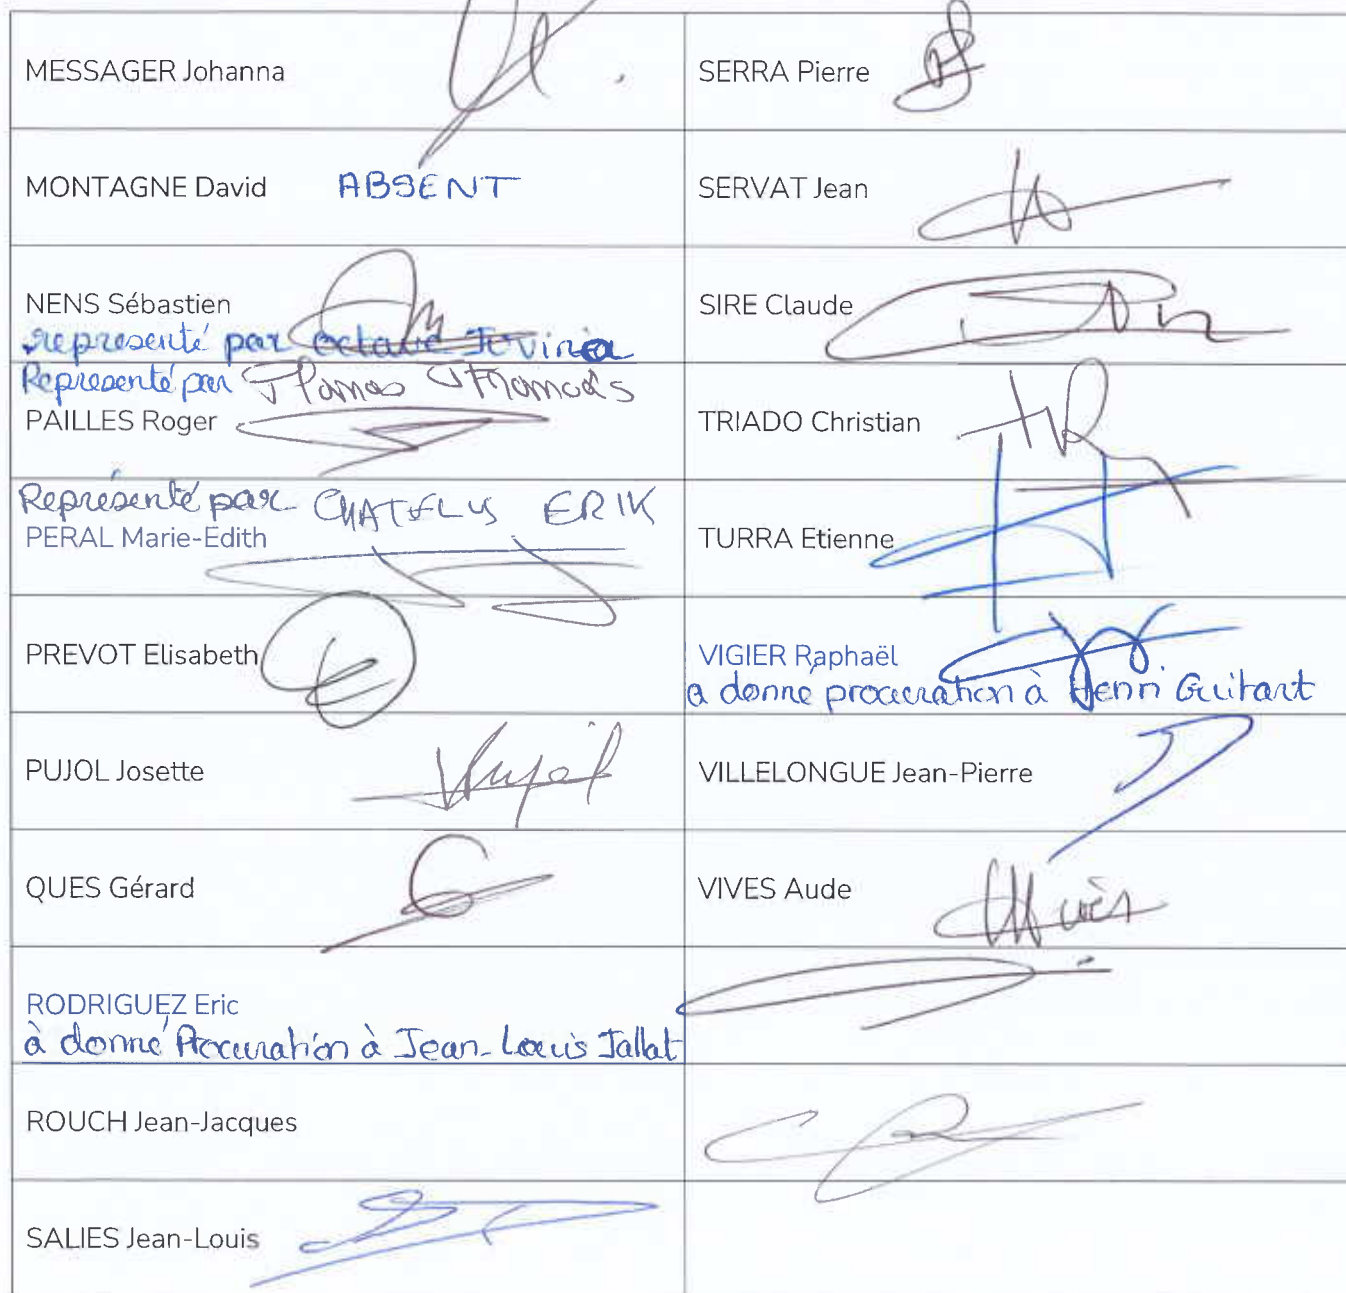 MESSAGER Johanna
SERRA Pierre
MONTAGNE David ABSENT
SERVAT Jean
NENS Sébastien
représenté par
SIRE Claude
Représenté par
PAILLES Roger
TRIADO Christian
Représenté par CHATELUS ERIK
PERAL Marie-Edith
TURRA Etienne
PREVOT Elisabeth
VIGIER Raphaël
a donné procuration à Henri Guitart
PUJOL Josette
VILLELONGUE Jean-Pierre
QUES Gérard
VIVES Aude
RODRIGUEZ Eric
à donné Procuration à Jean-Louis Jallat
ROUCH Jean-Jacques
SALIES Jean-Louis